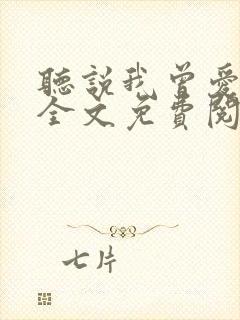 聽說我曾愛
全文免費閱
七片